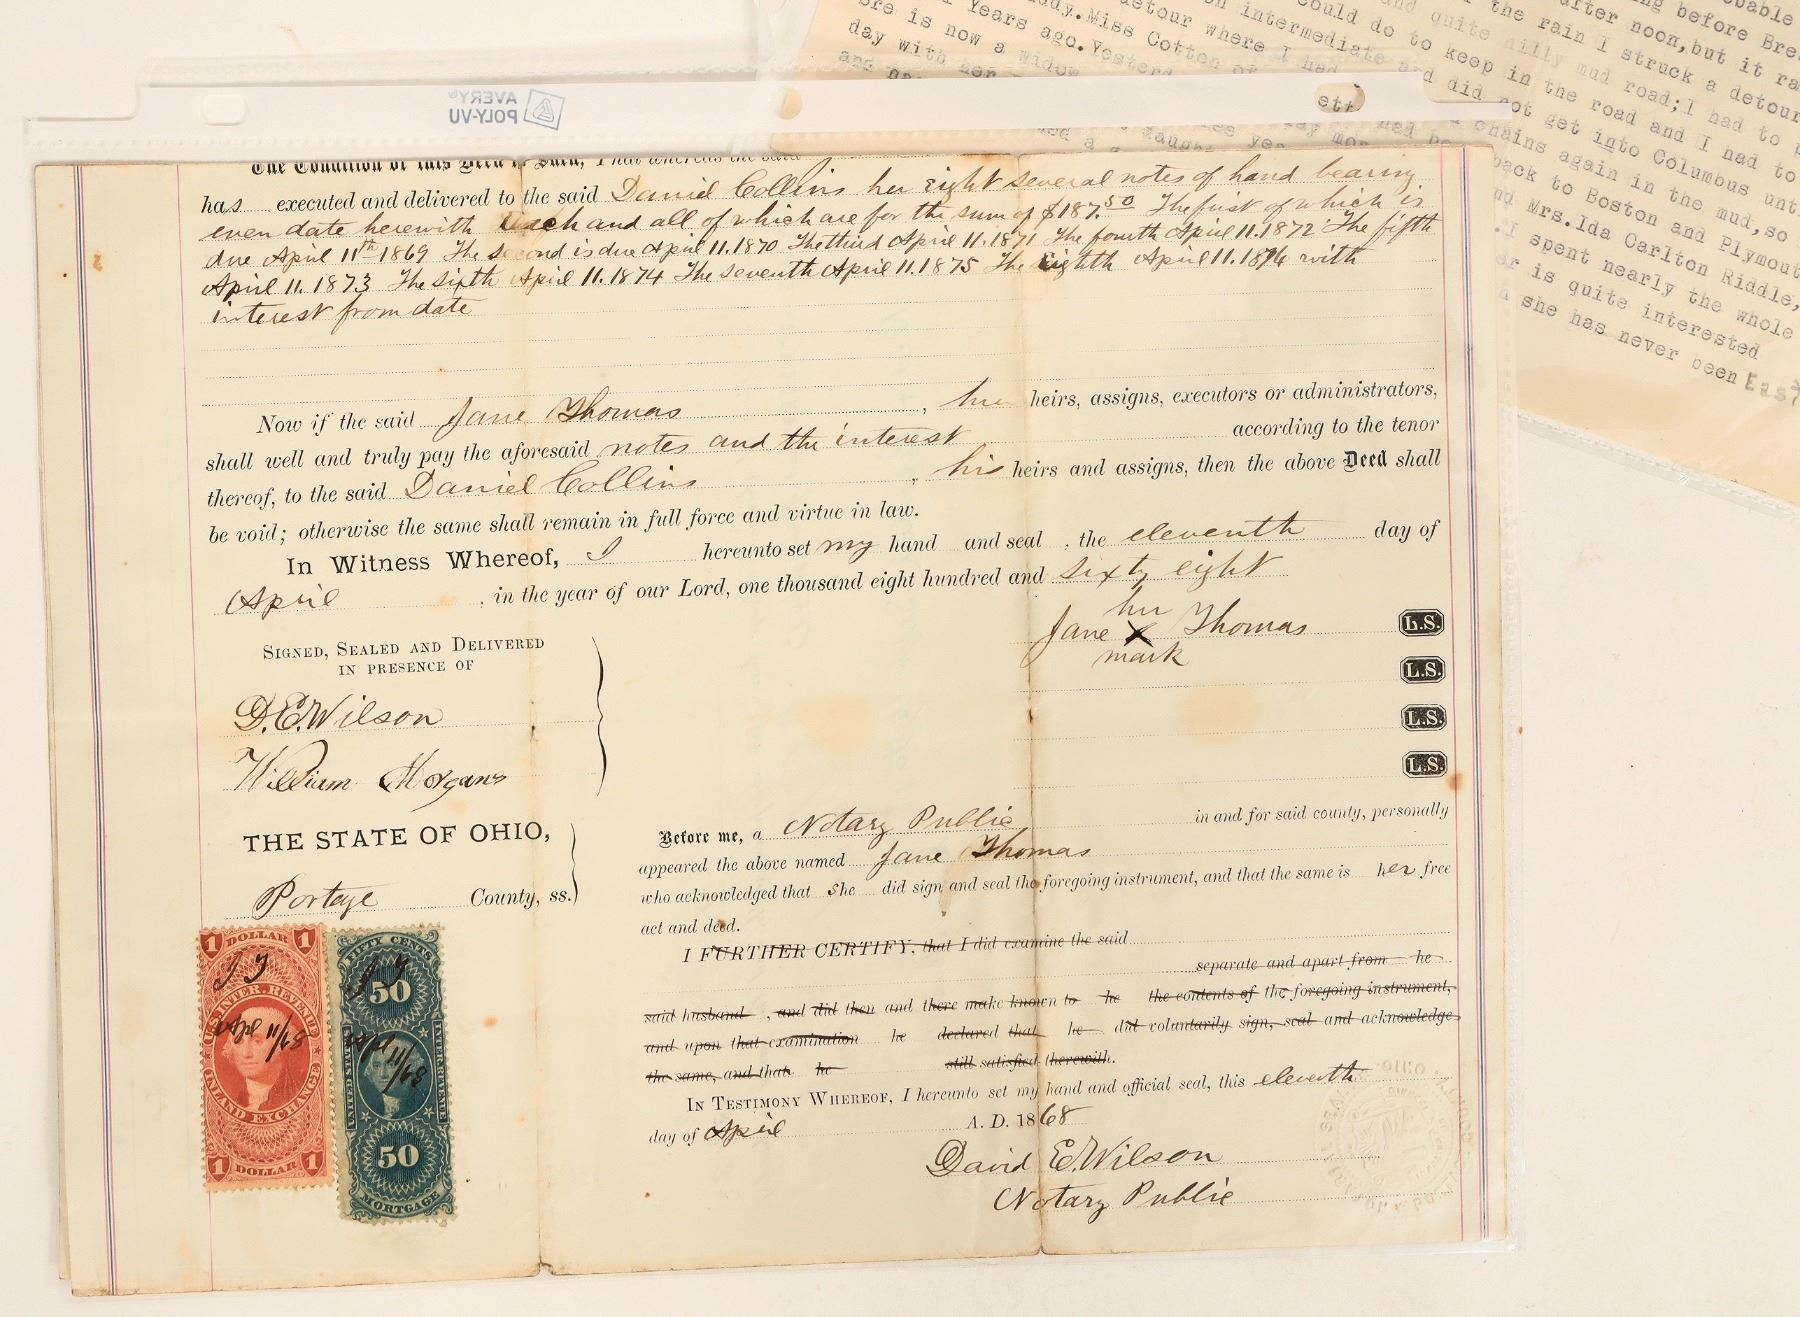 The Condition of this Deed is Such, That whereas the said
has executed and delivered to the said Daniel Collins her eight several notes of hand bearing
even date herewith each and all of which are for the sum of $187.50 The first of which is
due April 11th 1869 The second is due April 11.1870 The third April 11.1871 The fourth April 11.1872 The fifth
April 11.1873 The sixth April 11.1874 The seventh April 11.1875 The Eighth April 11.1876 with
interest from date
Now if the said Jane Thomas, her heirs, assigns, executors or administrators,
shall well and truly pay the aforesaid notes and the interest according to the tenor
thereof, to the said Daniel Collins, his heirs and assigns, then the above Deed shall
be void; otherwise the same shall remain in full force and virtue in law.
In Witness Whereof, I hereunto set my hand and seal, the eleventh day of
April, in the year of our Lord, one thousand eight hundred and sixty eight
her
Jane X Thomas L.S.
mark
L.S.
L.S.
L.S.
SIGNED, SEALED AND DELIVERED
IN PRESENCE OF
D.E.Wilson
William Morgans
THE STATE OF OHIO,
Portage County, ss.
Before me, a Notary Public in and for said county, personally
appeared the above named Jane Thomas
who acknowledged that she did sign and seal the foregoing instrument, and that the same is her free
act and deed.
I FURTHER CERTIFY, that I did examine the said
separate and apart from he
said husband, and did then and there make known to he the contents of the foregoing instrument,
and upon that examination he declared that he did voluntarily sign, seal and acknowledge
the same, and that he still satisfied therewith.
IN TESTIMONY WHEREOF, I hereunto set my hand and official seal, this eleventh
day of April A. D. 1868
David E.Wilson
Notary Public
1 DOLLAR 1
J T
U.S. INTER. REVENUE
Apl 11/68
INLAND EXCHANGE
1 DOLLAR 1
FIFTY CENTS
J T
50
UNITED STATES INTER REVENUE
Apl 11/68
50
MORTGAGE
AVERY
POLY-VU
ing before Bre
after noon,but it ra
the rain I struck a detour
hilly mud road;I had to p
could do to keep in the road and I had to
detour where I had
intermediate and did not get into Columbus unti
dy.Miss Cotton of
chains again in the mud,so
years ago.Yesterd
back to Boston and Plymout
re is now a widow
nd Mrs.Ida Carlton Riddle,
day with her
.I spent nearly the whole
ar is quite interested
she has never been East